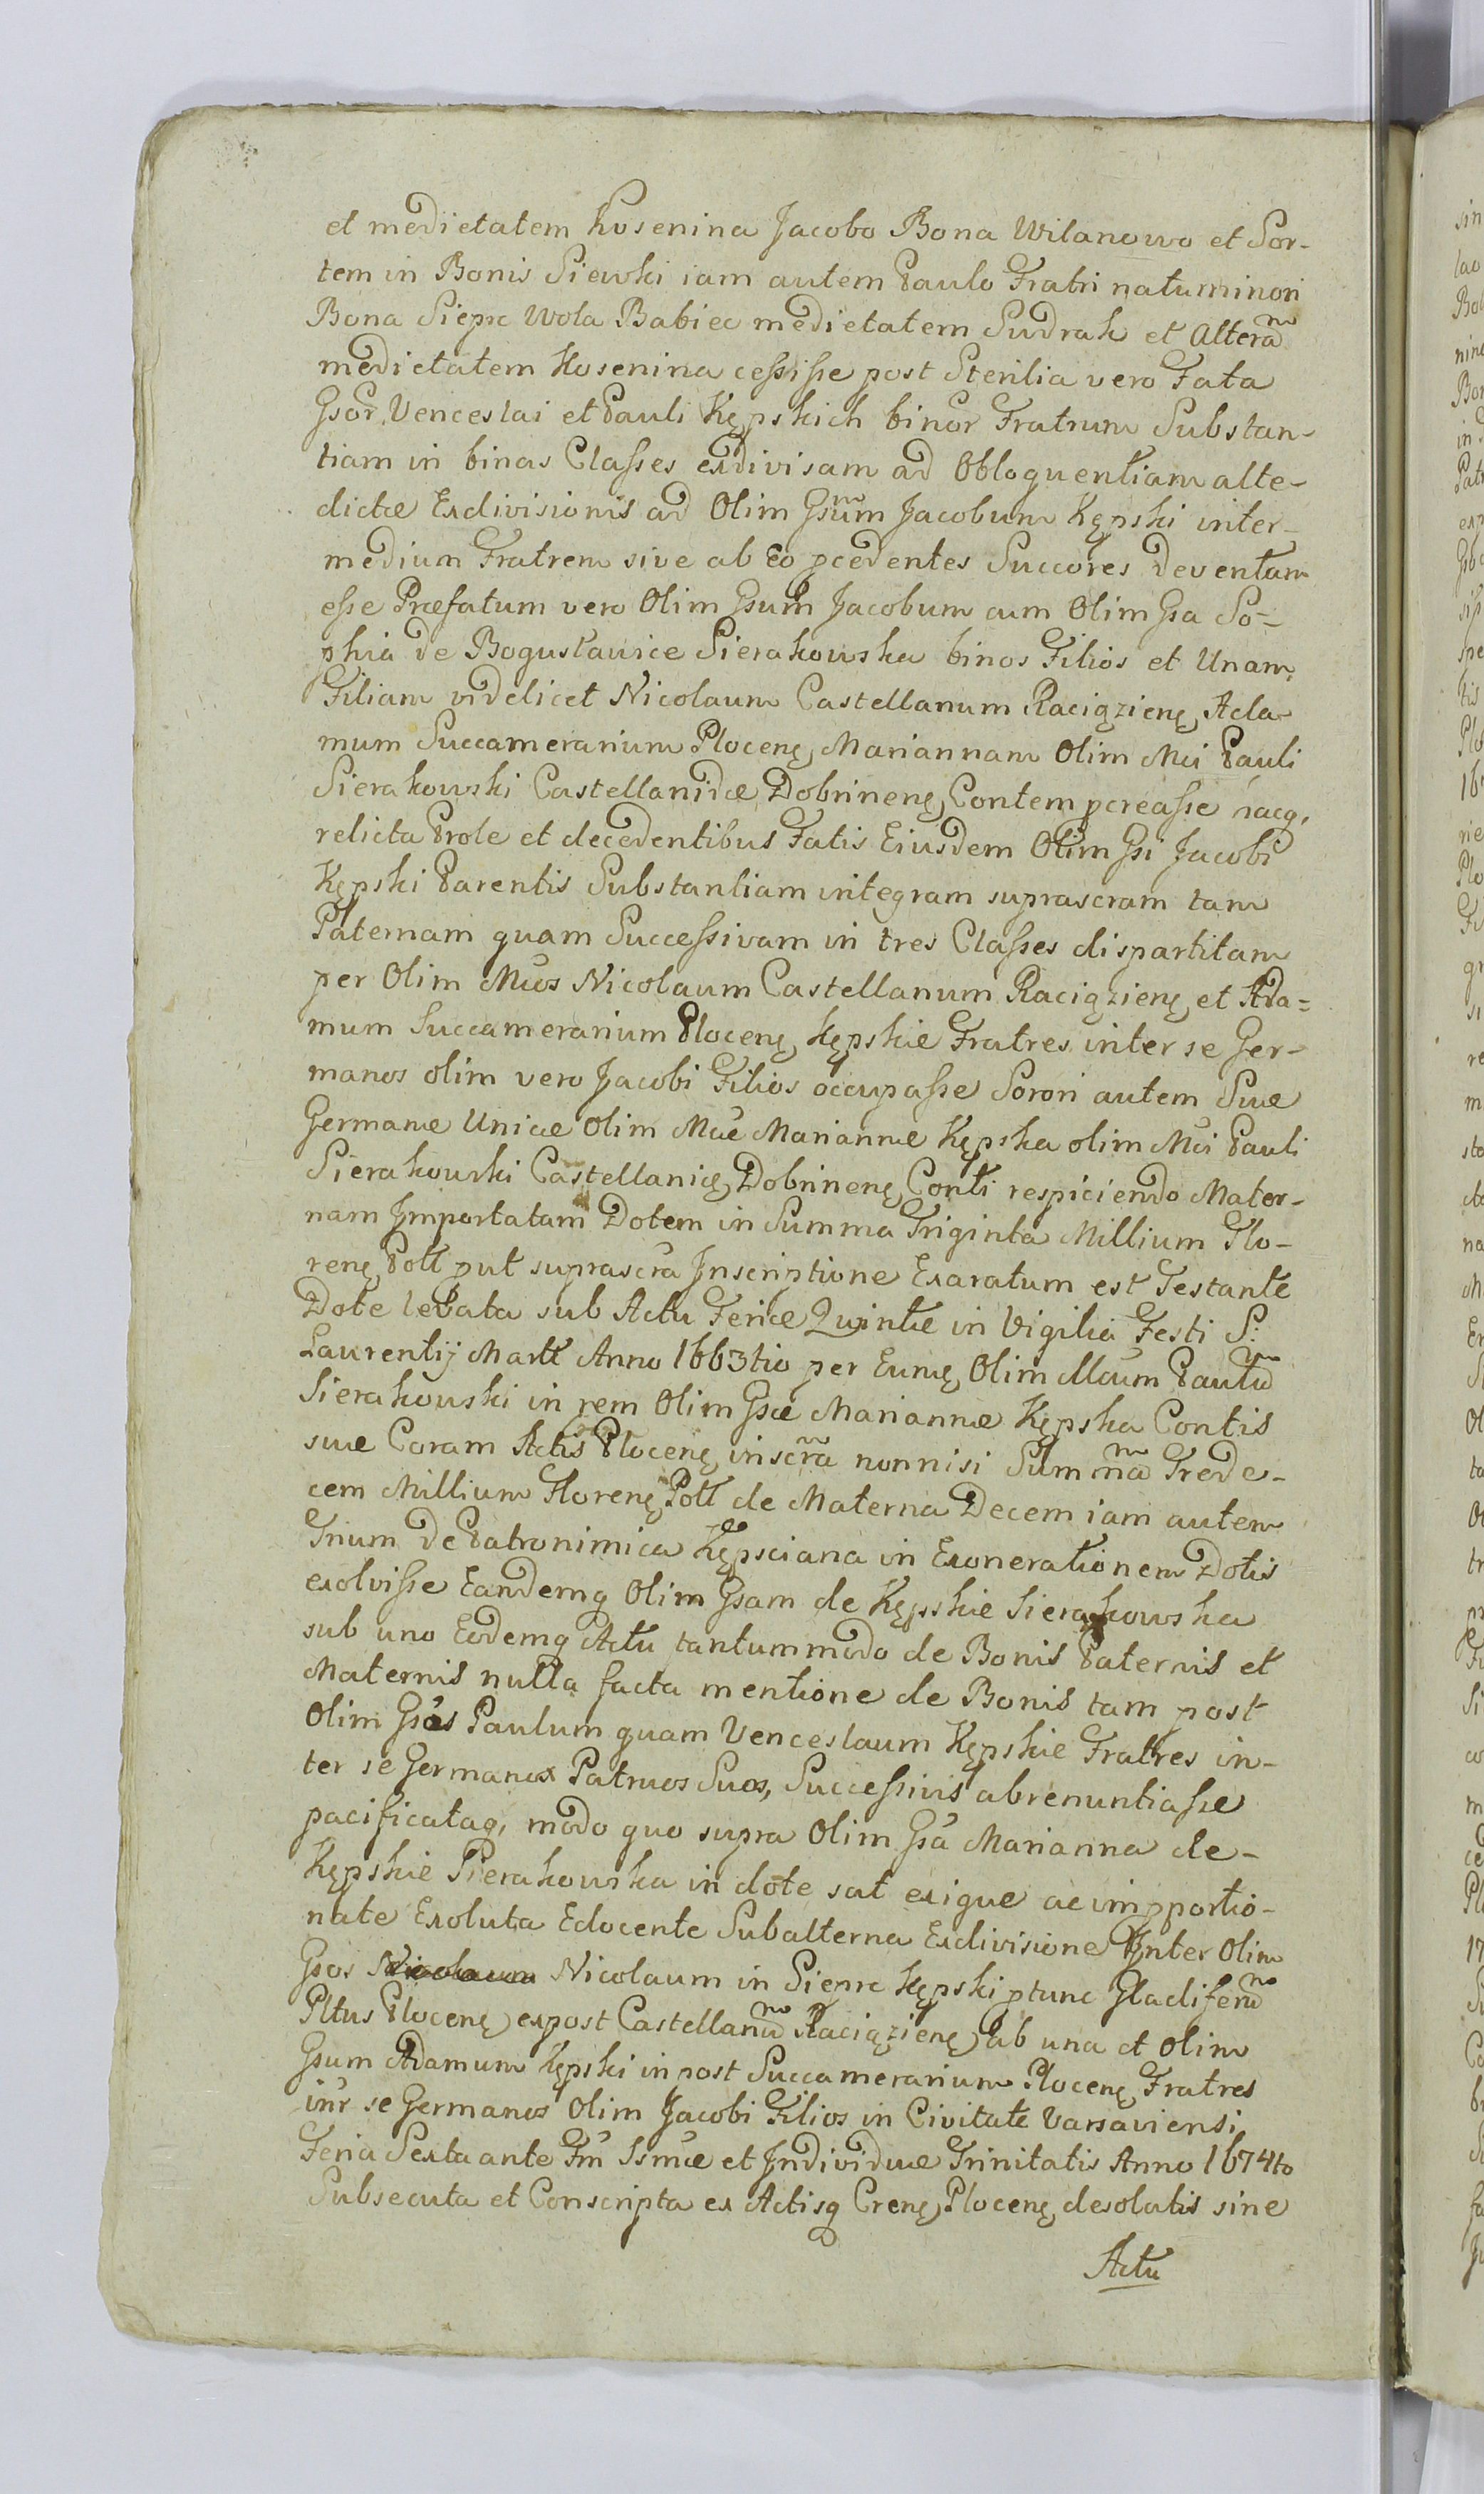 et medietatem Kosenina Jacobo Bona Wilanowo et Sor-
tem in Bonis Siewki iam autem Paulo Fratri natuminori
Bona Sieprc Wola Babiec medietatem Sudrak et Alteram
medietatem Kosenina cessisse post Sterilia vero Fata
Gsor. Venceslai et Pauli Kępskich binor Fratrum Substan-
tiam in binas Classes exdivisam ad Obloquentiam alte-
dictæ Exdivisionis ad Olim Gsum Jacobum Kępski inter-
medium Fratrem sive ab Eo pcedentes Succores deventam
esse Præfatum vero Olim Gsum Jacobum cum Olim Gsa So-
phia de Bogusławice Sierakowska binos Filios et Unam
Filiam videlicet Nicolaum Castellanum Raciązienę, Ada-
mum Succamerarium Plocenę, Mariannam Olim Mci Pauli
Sierakowski Castellanidæ Dobrinenę, Contem pcreasse sacq,
relicta Prole et decedentibus Fatis Eiusdem Olim Gsi Jacobi
Kępski Parentis Substantiam integram suprascram tam
Paternam quam Successivam in tres Classes dispartitam
per Olim Mcos Nicolaum Castellanum Raciązienę, et Ada=
mum Succamerarium Plocenę, Kępskie Fratres inter se Ger-
manos olim vero Jacobi Filios occupasse Sorori autem Suæ
Germanæ Unicæ Olim Mcæ Mariannæ Kępska olim Mci Pauli
Sierakowski Castellanię, Dobrinenę, Conti respiciendo Mater-
nam Importatam Dotem in Summa Triginta Millium Flo-
renę, Poll put suprascra Inscriptione Exaratum est Testante
Dote levata sub Actu Feriæ Quintæ in Vigilia Festi S:
Laurentij Martt Anno 1663tio per Eunę, Olim Mcum Paulum
Sierakowski in rem Olim Gsæ Mariannæ Kępska Contis
suæ Coram Actis Plocenę, inscra nonnisi Summam Trede-
cem Millium Florenę, Poll de Materna Decem iam autem
Trium de Patronimica Kępsciana in Exonerationem Dotis
exolvisse Eandemq Olim Gsam de Kępskie Sierakowska
sub uno Eodemq Actu tantummodo de Bonis Paternis et
Maternis nulla facta mentione de Bonis tam post
Olim Gsos Paulum quam Venceslaum Kępskie Fratres in-
ter se Germanos Patruos Suos, Successivis abrenuntiasse
pacificataq, modo quo supra Olim Gsa Marianna de-
Kępskie Sierakowska in dote sat exigue ac impportio-
nate Exoluta Edocente Subalterna Exdivisione Inter Olim
Gsos Nicolaum Nicolaum in Sieprc Kępski ptunc Gladiferum
Pltus Plocenę, expost Castellanum Raciązienę, ab una et Olim
Gsum Adamum Kępski inpost Succamerarium Plocenę, Fratres
inr se Germanos Olim Jacobi Filios in Civitate Varsaviensi
Feria Sexta ante Fm Ssmæ et Individuæ Trinitatis Anno 1674to
Subsecuta et Conscripta ex Actisq Crenę, Plocenę, desolatis sine
Actu